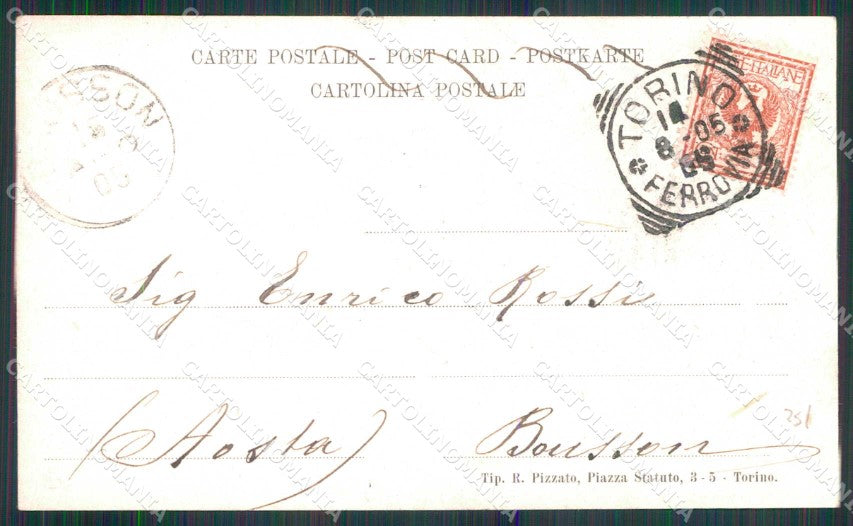 CARTE POSTALE - POST CARD - POSTKARTE
CARTOLINA POSTALE
TORINO
14
8 - 05
FERROVIA
Sig Enrico Rossi
(Aosta) Bousson
Tip. R. Pizzato, Piazza Statuto, 3 - 5 - Torino.
CARTOLINOMANIA